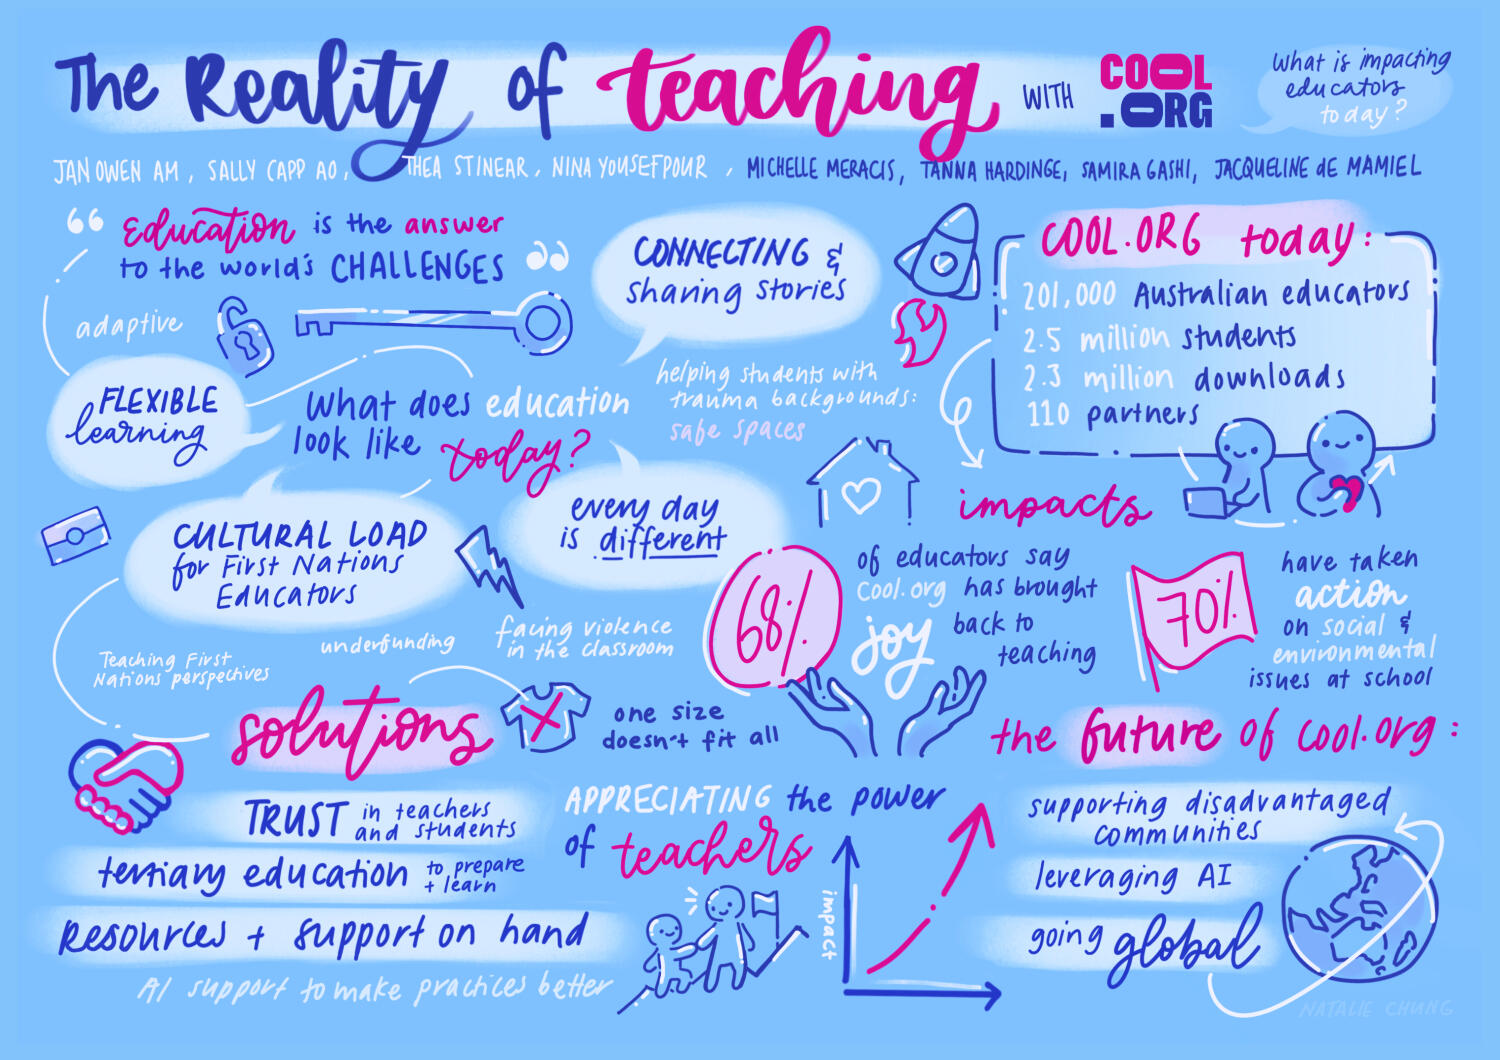 The Reality of teaching WITH COOL.ORG
What is impacting
educators
today?
JAN OWEN AM, SALLY CAPP AO, THEA STINEAR, NINA YOUSEFPOUR, MICHELLE MERACIS, TANNA HARDINGE, SAMIRA GASHI, JACQUELINE de MAMIEL
“ Education is the answer
to the world's CHALLENGES ”
adaptive
FLEXIBLE
learning
What does education
look like today?
CONNECTING &
sharing stories
helping students with
trauma backgrounds:
safe spaces
COOL.ORG today:
201,000 Australian educators
2.5 million students
2.3 million downloads
110 partners
CULTURAL LOAD
for First Nations
Educators
every day
is different
underfunding
facing violence
in the classroom
Teaching First
Nations perspectives
impacts
68%
of educators say
Cool.org has brought
joy back to
teaching
70%
have taken
action
on social &
environmental
issues at school
solutions
one size
doesn't fit all
TRUST in teachers
and students
tertiary education to prepare
+ learn
resources + support on hand
AI support to make practices better
APPRECIATING the power
of teachers
impact
the future of cool.org:
supporting disadvantaged
communities
leveraging AI
going global
NATALIE CHUNG